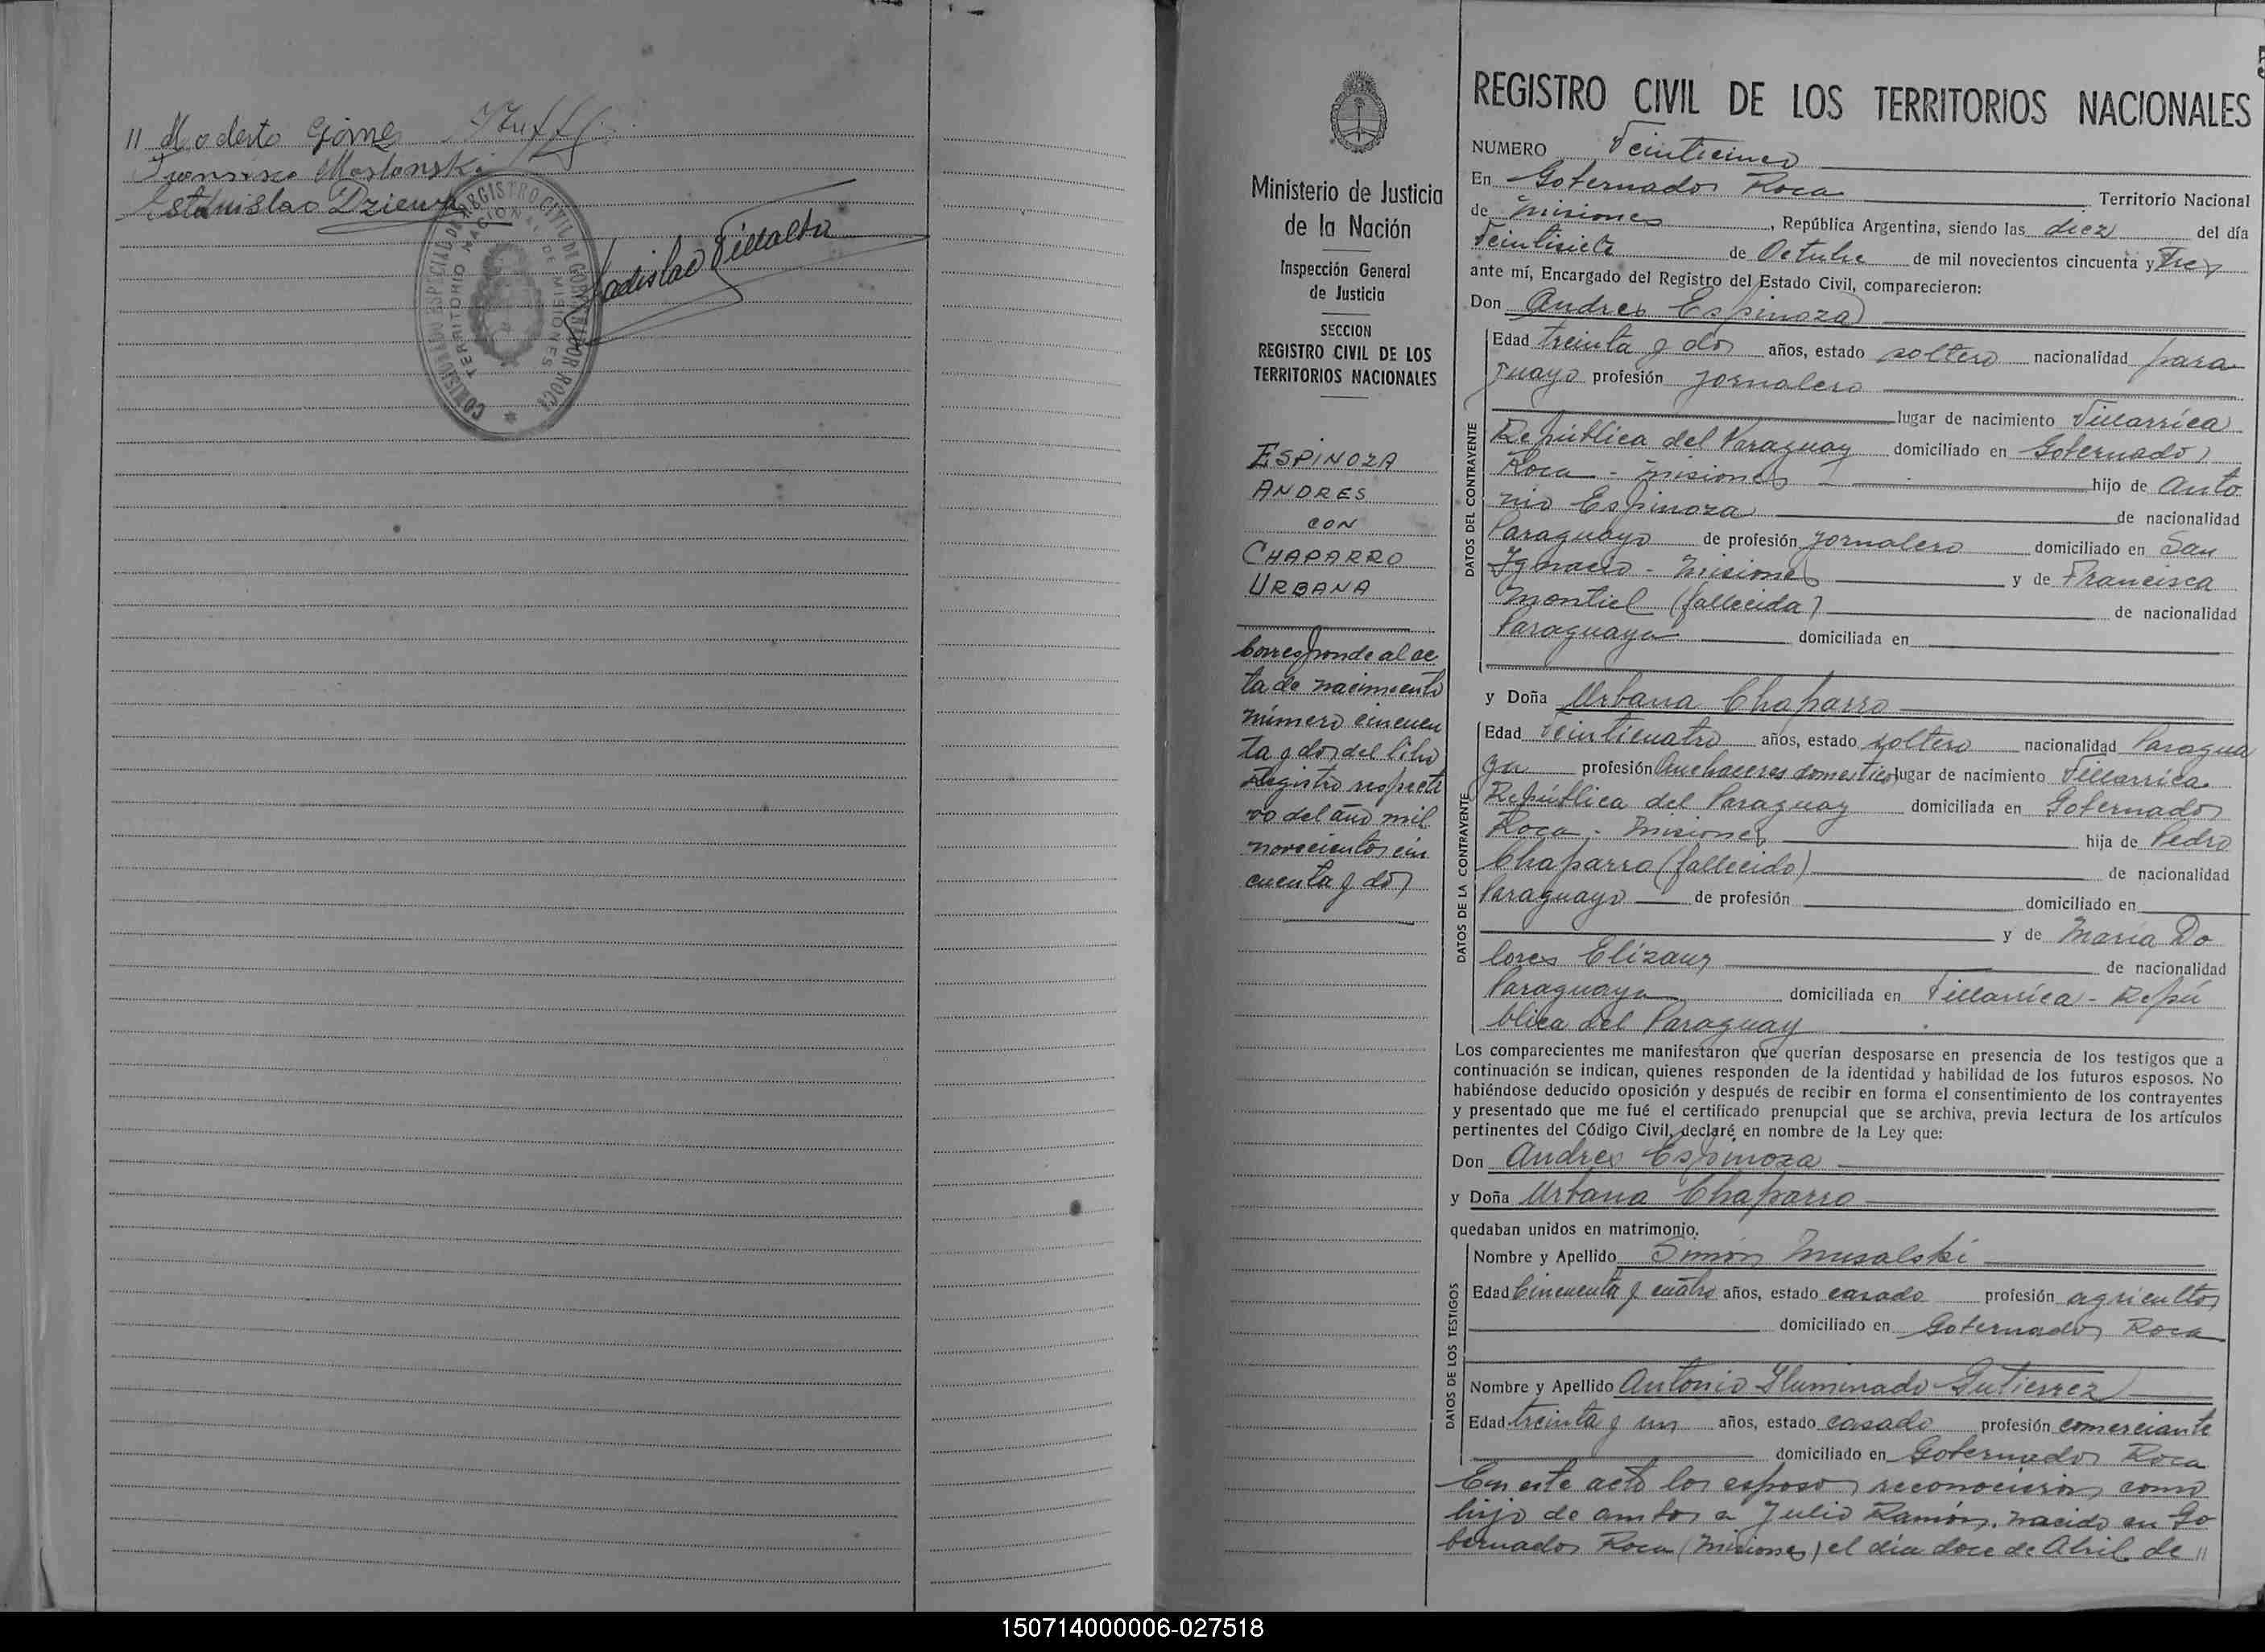 " Modesto Gómez
Francisco Maslonski
Estanislao Dzienya
Ladislao Villalba
COMISIONADO ESPECIAL DE REGISTRO CIVIL DE GOBERNADOR ROCA
TERRITORIO NACIONAL DE MISIONES
Ministerio de Justicia
de la Nación
Inspección General
de Justicia
SECCION
REGISTRO CIVIL DE LOS
TERRITORIOS NACIONALES
ESPINOZA
ANDRES
CON
CHAPARRO
URBANA
Corresponde al ac
ta de nacimiento
número cincuen
ta y dos del libro
Registro respecti
vo del año mil
novecientos cin
cuenta y dos
REGISTRO CIVIL DE LOS TERRITORIOS NACIONALES
NUMERO Veinticinco
En Gobernador Roca Territorio Nacional
de Misiones, República Argentina, siendo las diez del día
Veintisiete de Octubre de mil novecientos cincuenta y tres
ante mí, Encargado del Registro del Estado Civil, comparecieron:
Don Andres Espinoza
DATOS DEL CONTRAYENTE
Edad treinta y dos años, estado soltero nacionalidad para
guayo profesión jornalero
lugar de nacimiento Villarríca
República del Paraguay domiciliado en Gobernador
Roca - Misiones hijo de Anto
nio Espinoza de nacionalidad
Paraguayo de profesión jornalero domiciliado en San
Ignacio - Misiones y de Francisca
Montiel (fallecida) de nacionalidad
Paraguaya domiciliada en
y Doña Urbana Chaparro
DATOS DE LA CONTRAYENTE
Edad Veinticuatro años, estado soltera nacionalidad Paragua
ya profesión Quehaceres domesticos lugar de nacimiento Villarríca
República del Paraguay domiciliada en Gobernador
Roca - Misiones hija de Pedro
Chaparro (fallecido) de nacionalidad
Paraguayo de profesión domiciliado en
y de María Do
lores Elizaur de nacionalidad
Paraguaya domiciliada en Villarríca - Repú
blica del Paraguay
Los comparecientes me manifestaron que querían desposarse en presencia de los testigos que a
continuación se indican, quienes responden de la identidad y habilidad de los futuros esposos. No
habiéndose deducido oposición y después de recibir en forma el consentimiento de los contrayentes
y presentado que me fué el certificado prenupcial que se archiva, previa lectura de los artículos
pertinentes del Código Civil, declaré en nombre de la Ley que:
Don Andres Espinoza
y Doña Urbana Chaparro
quedaban unidos en matrimonio.
DATOS DE LOS TESTIGOS
Nombre y Apellido Simón Musalski
Edad Cincuenta y cuatro años, estado casado profesión agricultor
domiciliado en Gobernador Roca
Nombre y Apellido Antonio Iluminado Gutierrez
Edad treinta y un años, estado casado profesión comerciante
domiciliado en Gobernador Roca
En este acto los esposos reconocieron como
hijo de ambos a Julio Ramón, nacido en Go
bernador Roca (Misiones) el día doce de Abril de "
150714000006-027518